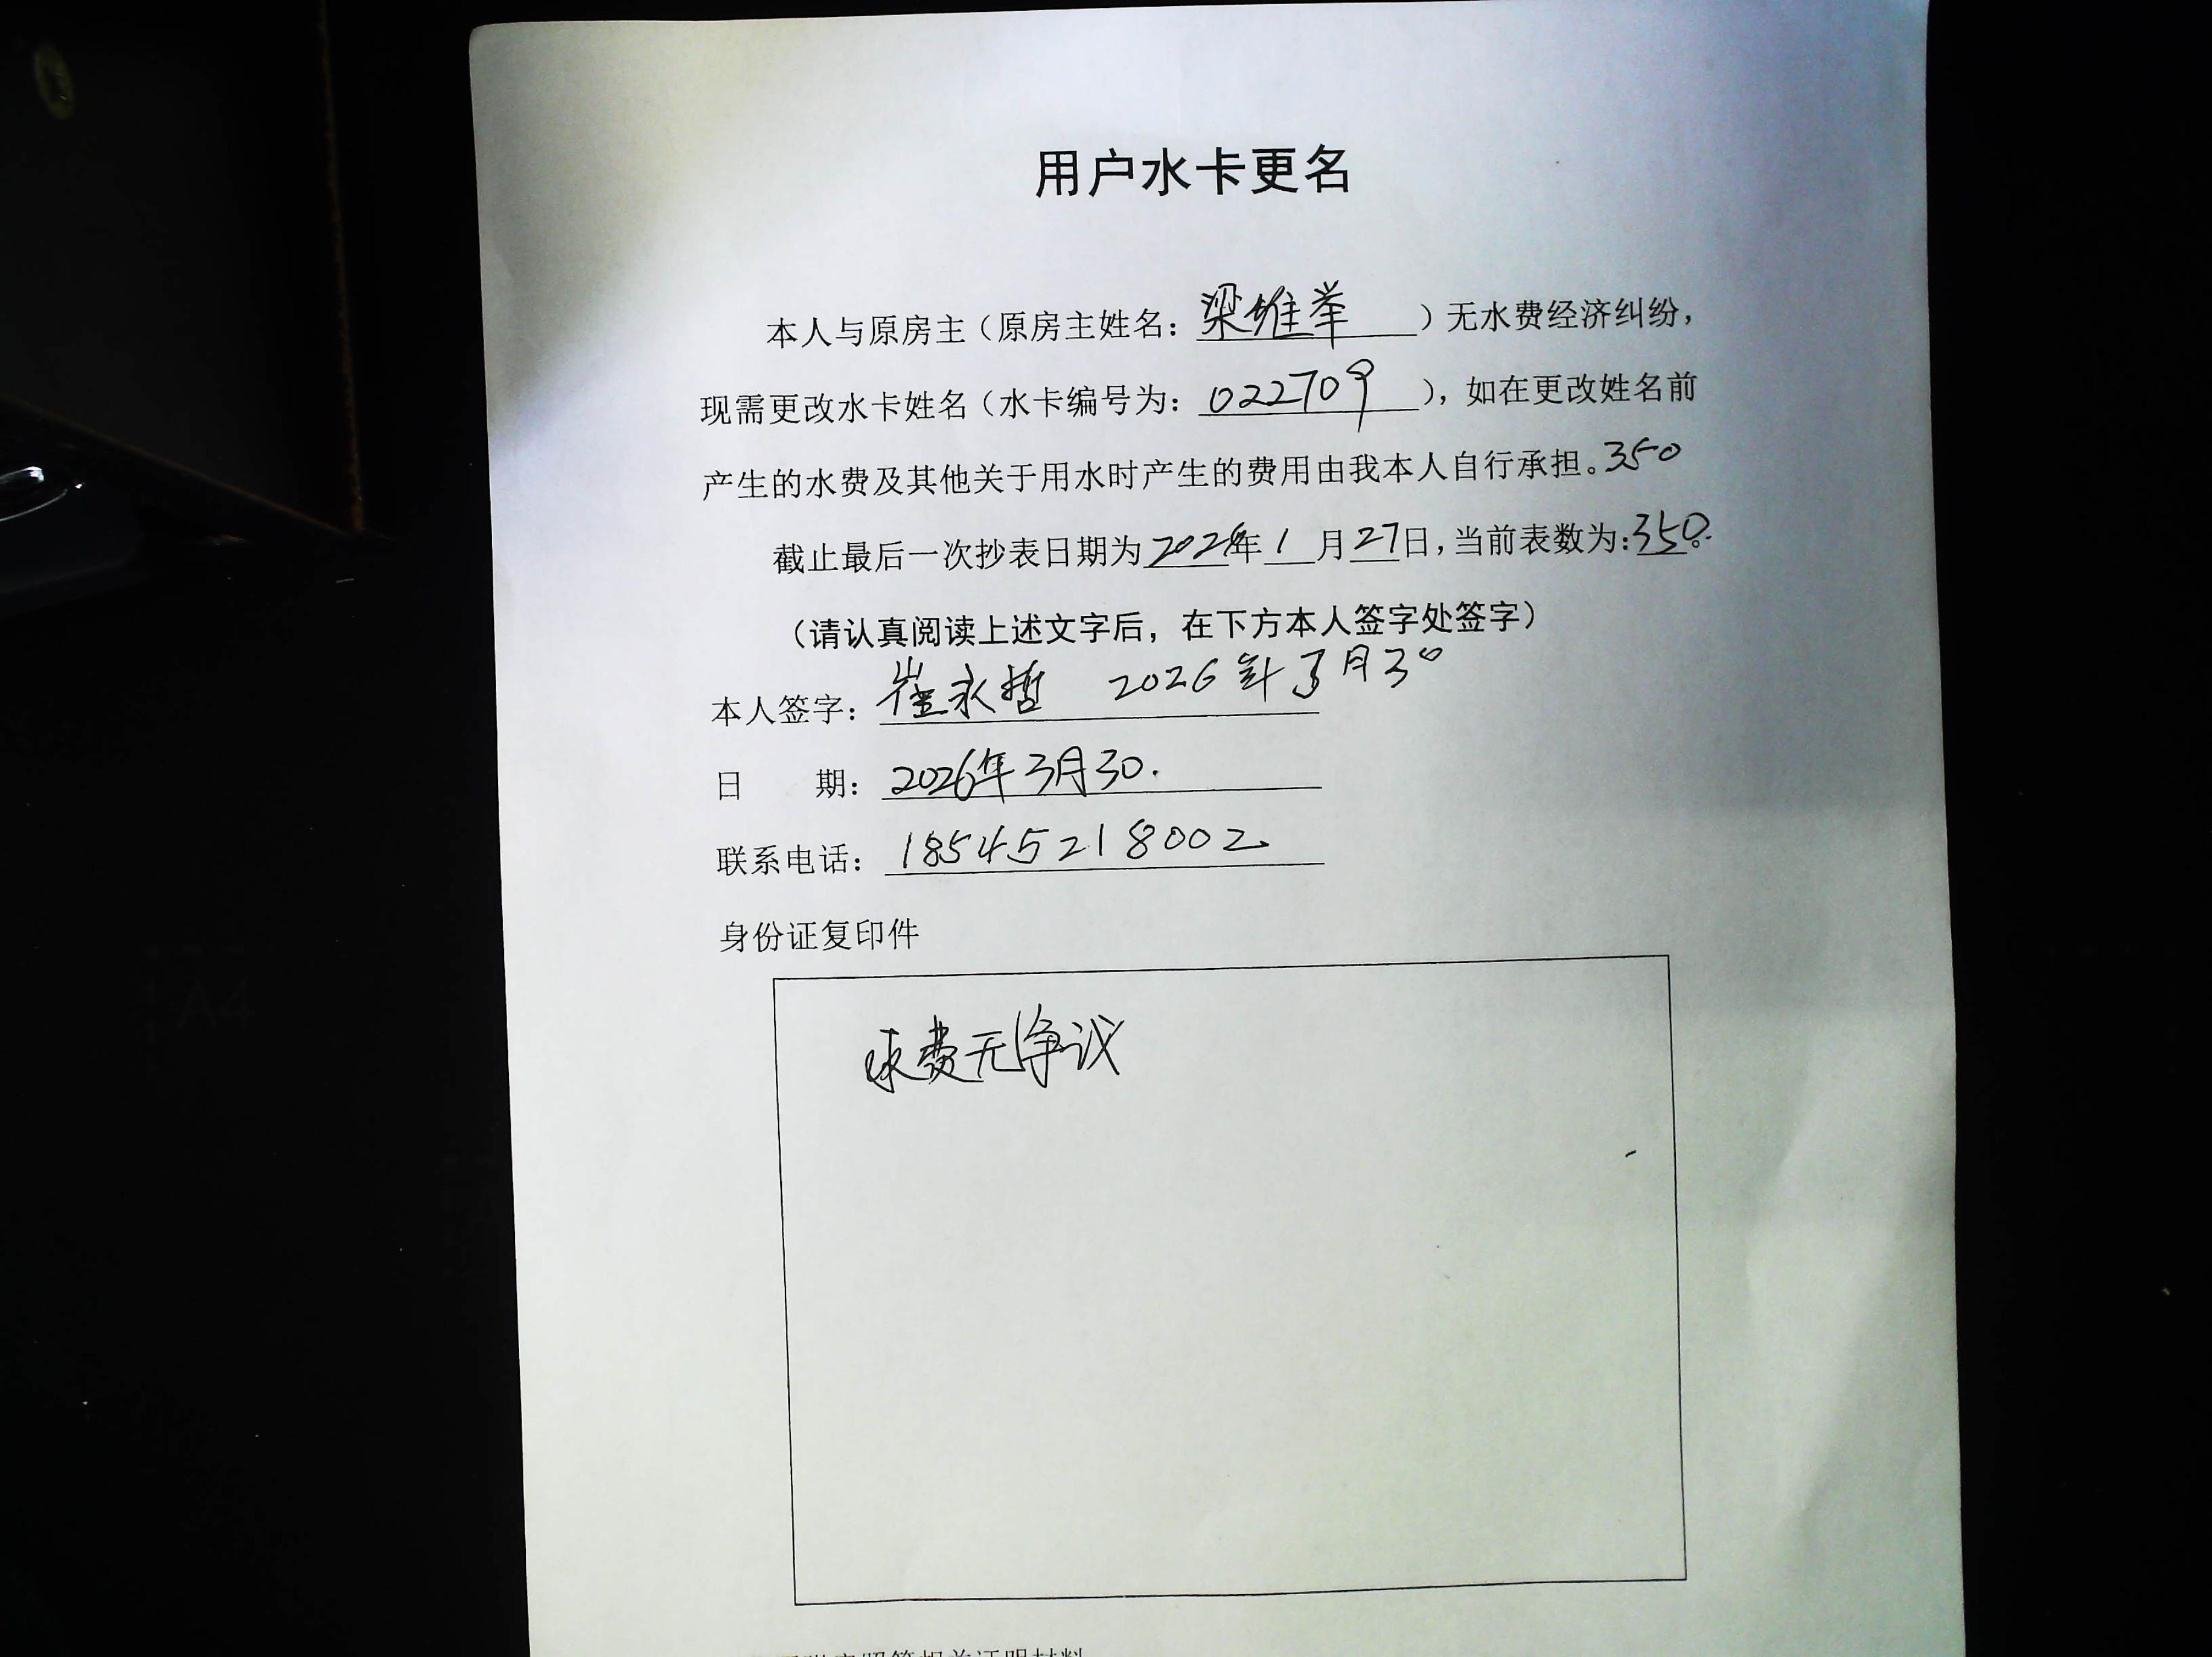 用户水卡更名
本人与原房主（原房主姓名：梁维举）无水费经济纠纷，
现需更改水卡姓名（水卡编号为：022709），如在更改姓名前
产生的水费及其他关于用水时产生的费用由我本人自行承担。350
截止最后一次抄表日期为2026年1月27日，当前表数为：350.
（请认真阅读上述文字后，在下方本人签字处签字）
本人签字：崔永哲 2026年3月30
日 期：2026年3月30.
联系电话：18545218002
身份证复印件
水费无争议
A4